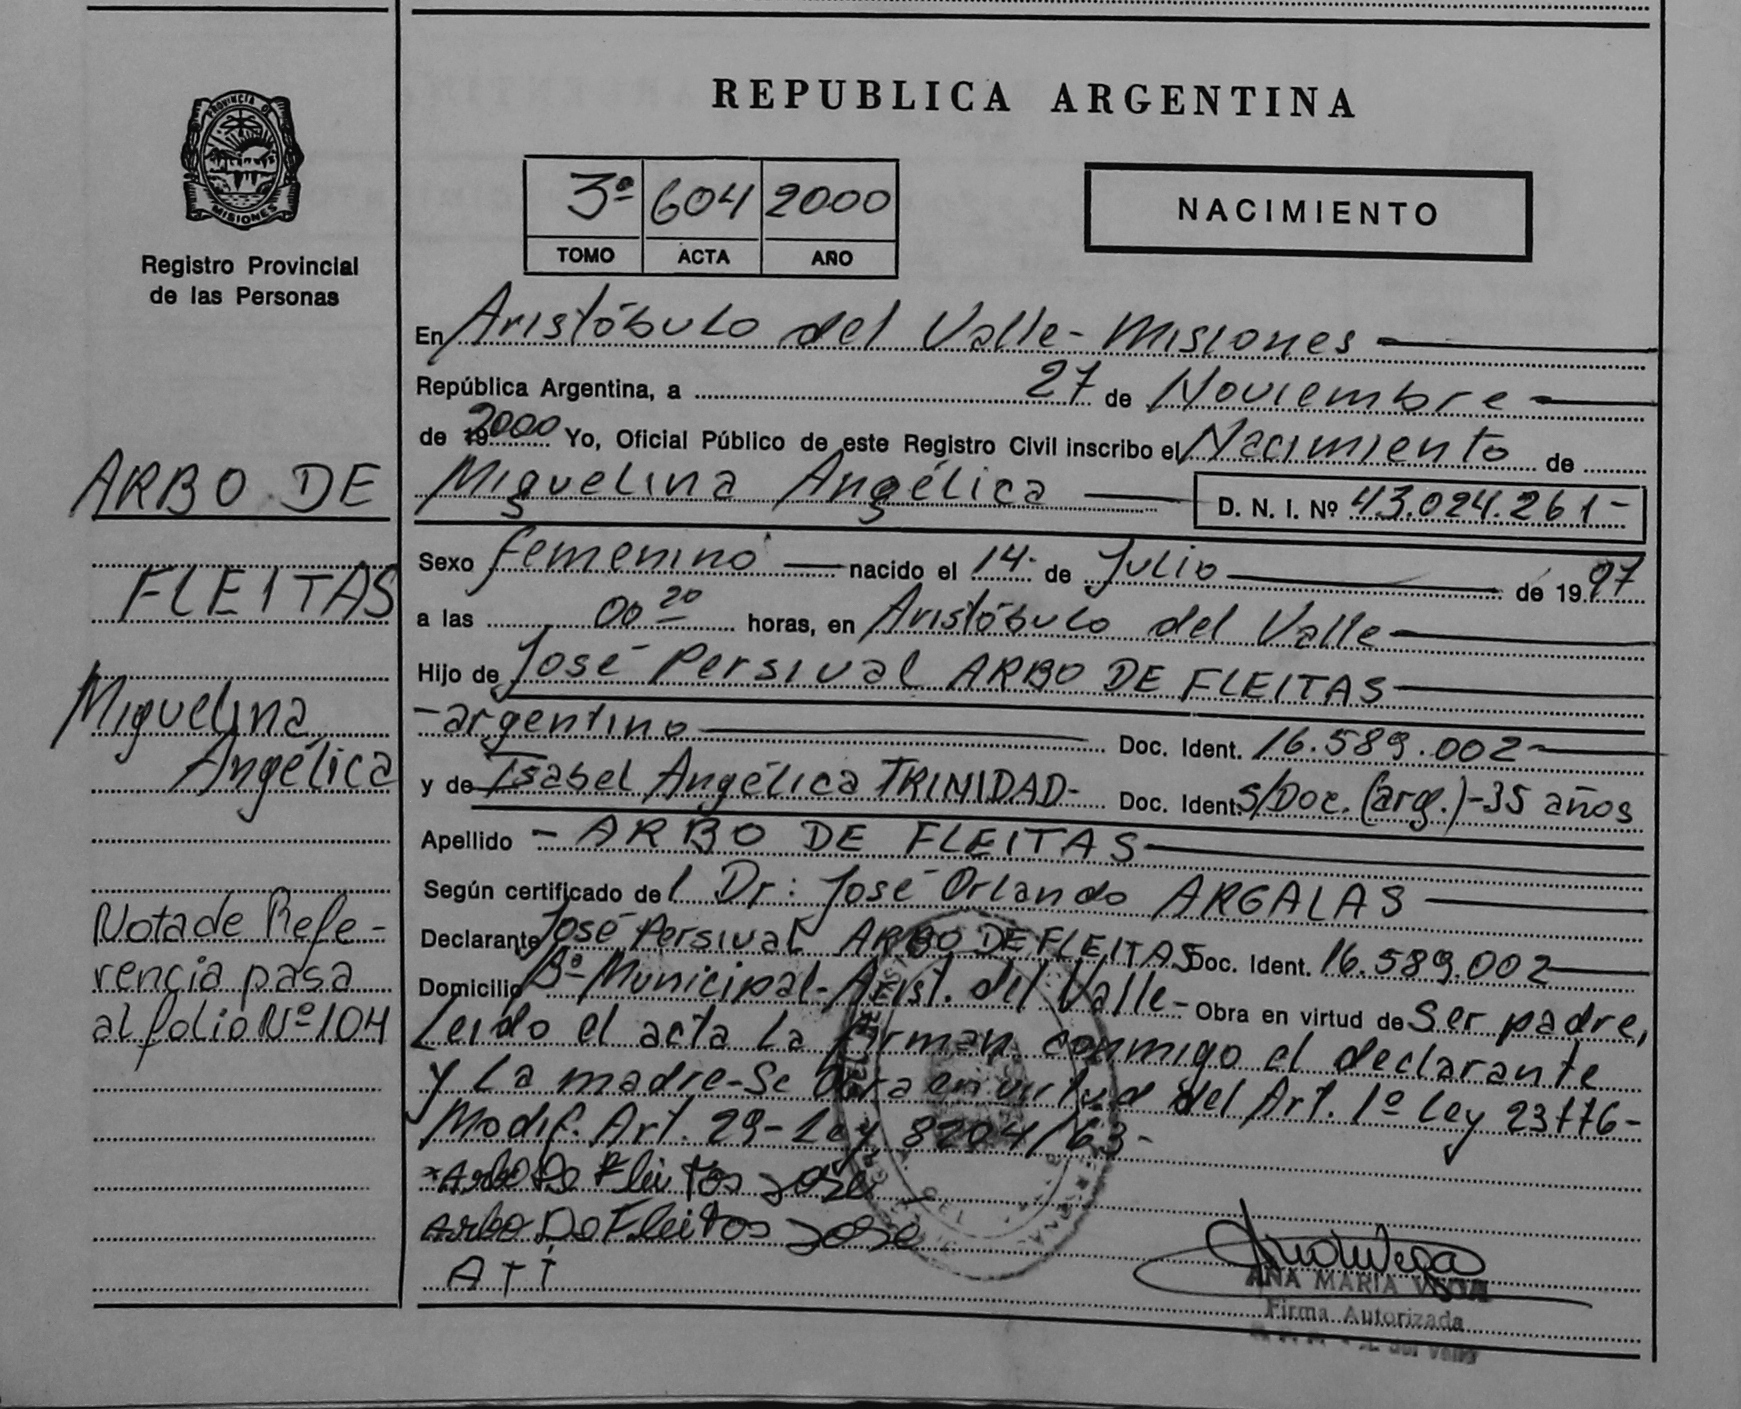 REPUBLICA ARGENTINA
PROVINCIA DE
MISIONES
Registro Provincial
de las Personas
3º 604 2000
TOMO ACTA AÑO
NACIMIENTO
En Aristóbulo del Valle - Misiones
República Argentina, a 27 de Noviembre
de 19 2000 Yo, Oficial Público de este Registro Civil inscribo el Nacimiento de
Miguelina Angélica D. N. I. Nº 43.024.261-
Sexo femenino nacido el 14 de Julio de 1997
a las 00 20 horas, en Aristóbulo del Valle
Hijo de José Persival ARBO DE FLEITAS
- argentino Doc. Ident. 16.589.002
y de Isabel Angélica TRINIDAD- Doc. Ident. S/Doc. (arg.)-35 años
Apellido - ARBO DE FLEITAS
Según certificado del Dr: José Orlando ARGALAS
Declarante José Persival ARBO DE FLEITAS Doc. Ident. 16.589.002
Domicilio Bº Municipal-Arist. del Valle- Obra en virtud de Ser padre,
Leido el acta la firman conmigo el declarante
y la madre-Se Obra en virtud del Art. 1º Ley 23776-
Modif. Art. 29-Ley 8204/63-
Arbo De Fleitos José
Arbo De Fleitos José
ATI
ANA MARIA VEGA
Firma Autorizada
ARBO DE
FLEITAS
Miguelina
Angélica
Nota de Refe-
rencia pasa
al folio Nº 104